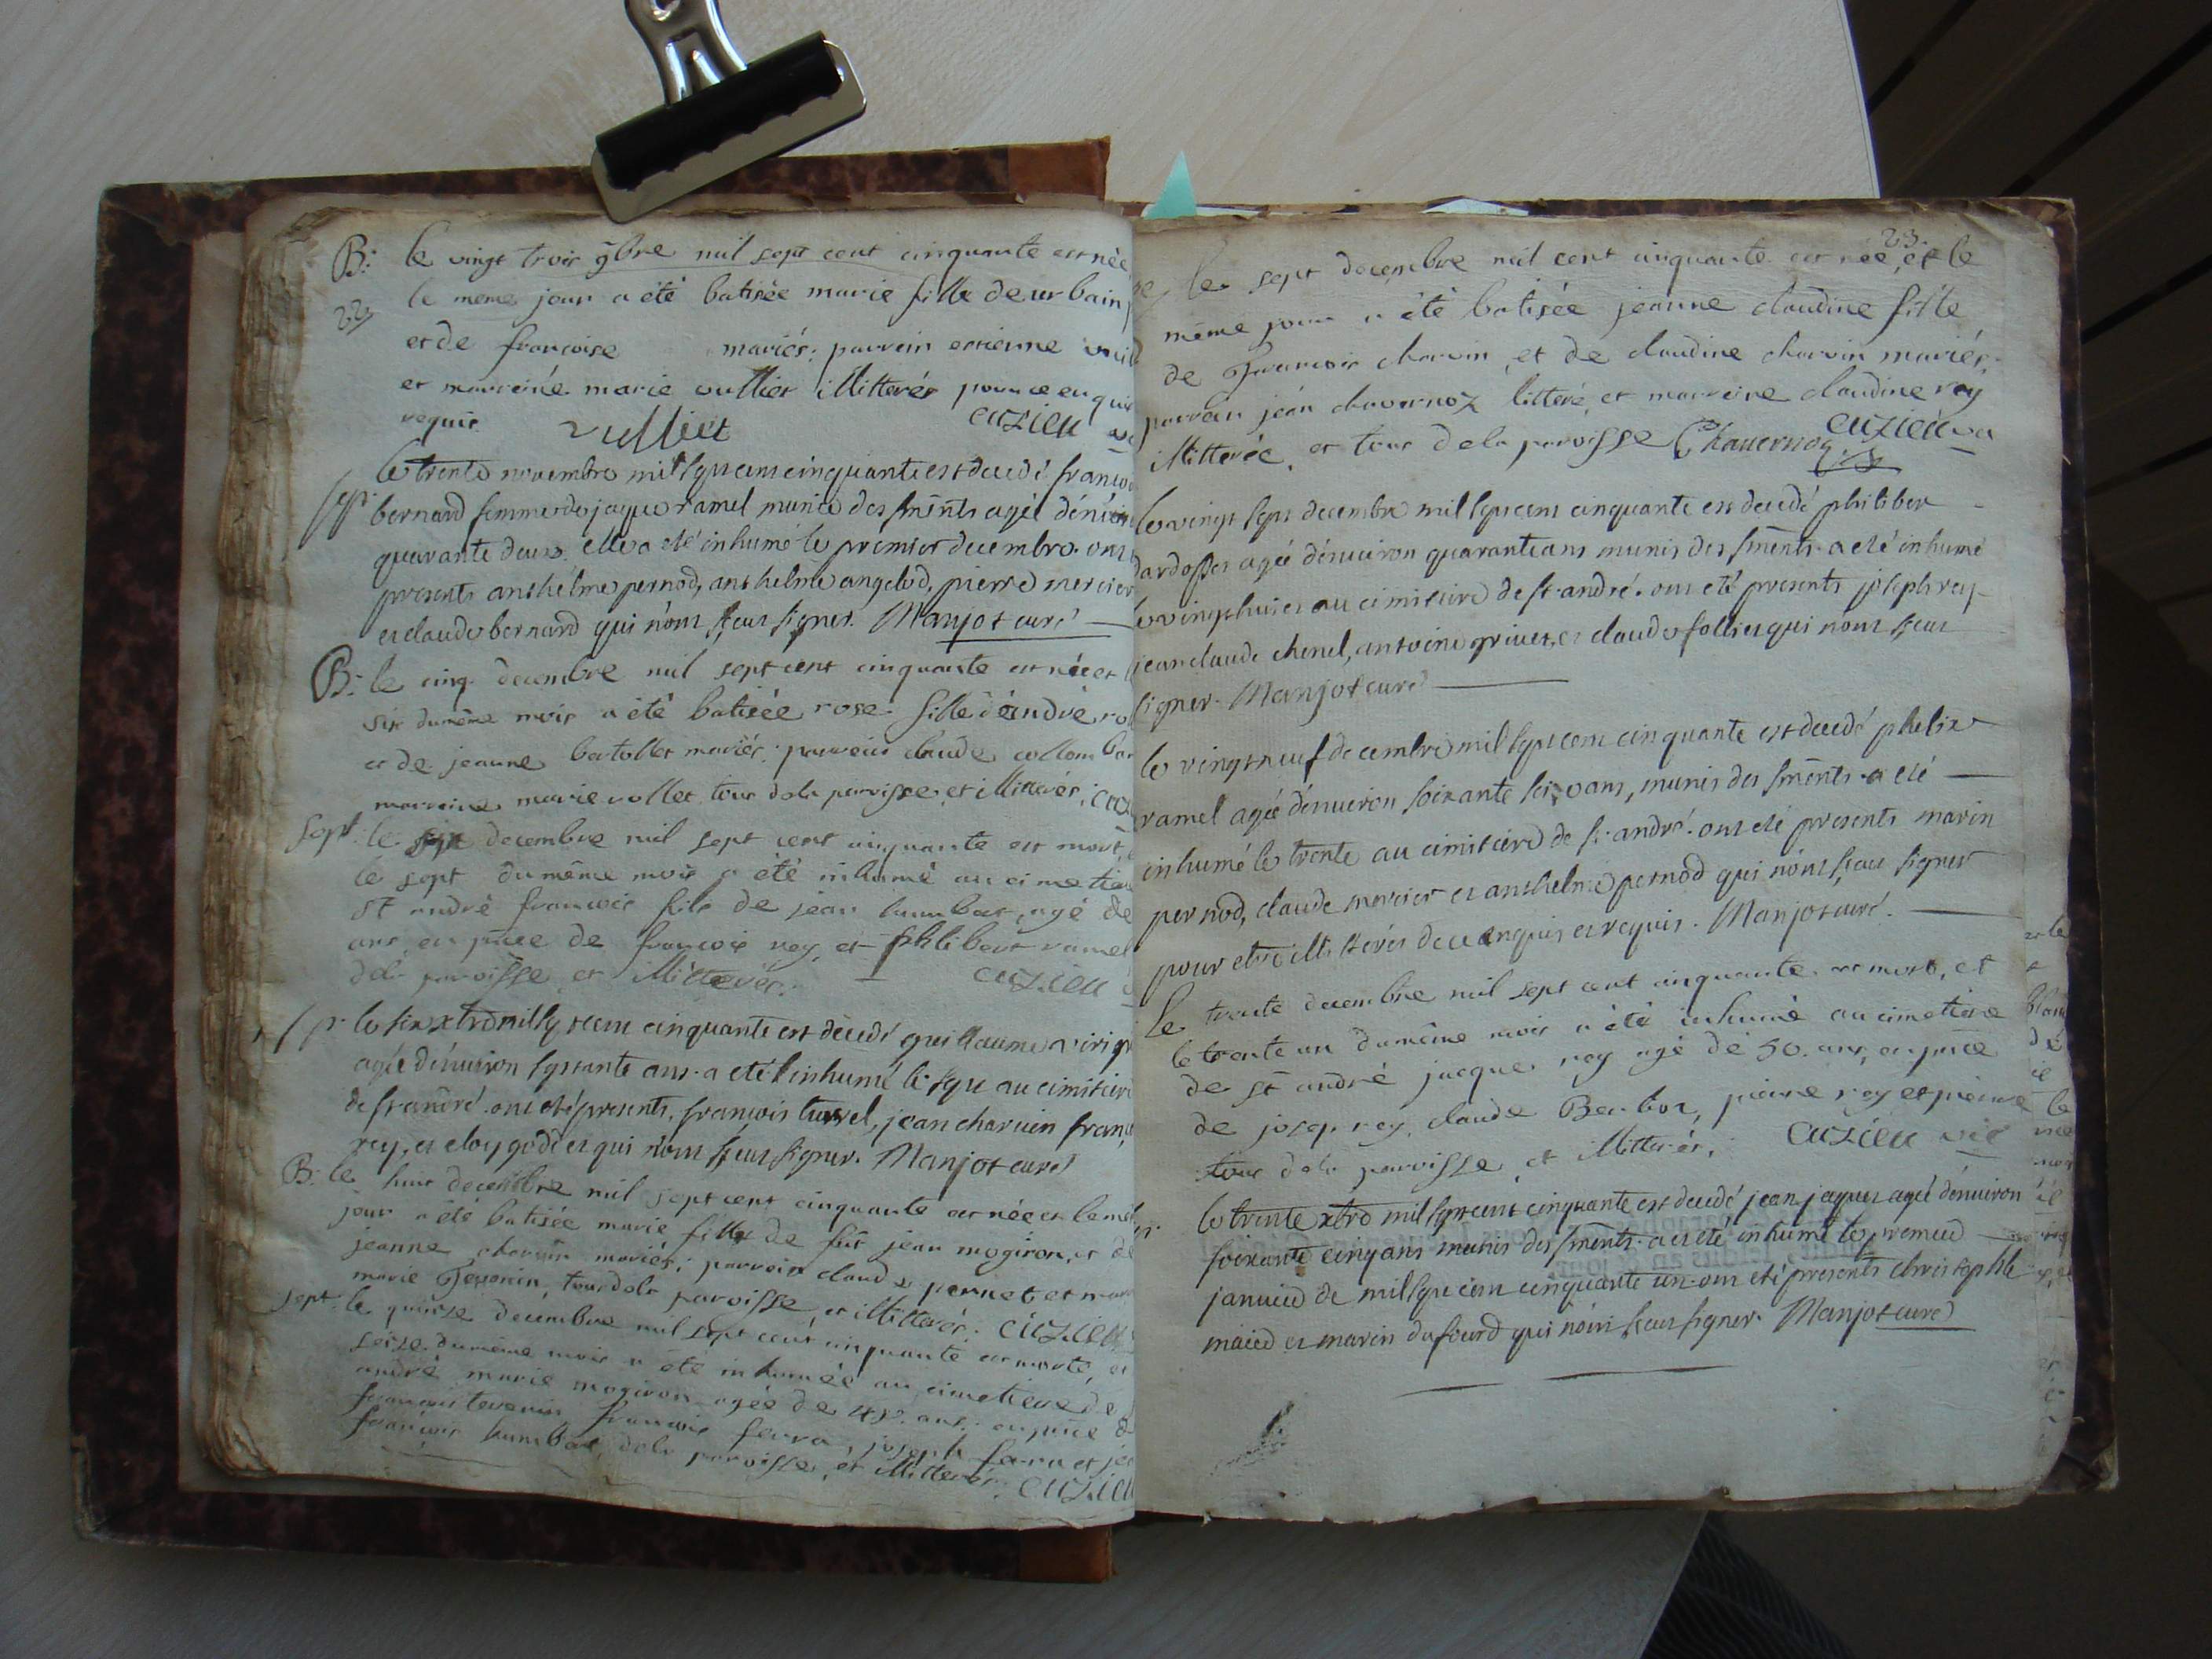 B: le vingt trois 9bre mil sept cent cinquante est née
22 le meme jour a été batisée marie fille de urbain
et de francoise mariés: parrein estienne
et marreine marie vullier illitterés pour ce enquis
requis vulliet cuzieu
le trente novembre mil sept cent cinquante est decedé
sept. bernard femme de jaque ramel munie des sments agée dénviron
quarante deux. elle a eté inhumé le premier decembre. ont
presents anthelme pernod, anthelme angelod, pierre mercier
et claude bernard qui nont sceu signer. Manjot curé
B: le cinq decembre mil sept cent cinquante est née et
six du même mois a été batisée rose fille d'andré
et de jeanne bertollet mariés: parrein claude
marreine marie vollet tous de la paroisse et illitterés,
sept. le six decembre mil sept cent cinquante est mort
le sept du même mois a été inhumé au cimetiere
st andré francois fils de jean humbert, agé de
ans, en pnce de francois rey, et philibert ramel
de la paroisse et illitterés. cuzieu
sp. le six xbre mil sept cent cinquante est décedé guillaume
agée dénviron septante ans. a eté inhumé le sept au cimitiere
de st andré. ont eté presents, françois turrel, jean charvin
rey, et eloy goddet qui nont sceu signer. Manjot curé
B: le huit decembre mil sept cent cinquante est née et le même
jour a été batisée marie fille de fut jean mogiron, et de
jeanne charvin mariés; parrein claude pernet et
marie Tevenin, tous de la paroisse, et illitterés: cuzieu
sept. le quinse decembre mil sept cent cinquante est morte, et
seise du même mois a été inhumée au cimetiere de
andré marie mogiron agée de 48. ans: en pnce
francois tevenin francois ferra, joseph ferra et
francois humbert, de la paroisse, et illitterés. cuzieu
23.
le sept decembre mil cent cinquante est née, et le
même jour a été batisée jeanne claudine fille
de Francois charvin et de claudine charvin mariés,
parrein jean chavernoz litteré, et marreine claudine rey
illitterée, et tous de la paroisse Chavernoz cuzieu
le vingt sept decembre mil sept cent cinquante est decedé philiber
dardosser agée dénviron quarante ans munis des sments. a eté inhumé
le vingt huit au cimitiere de st. andré. ont eté presents joseph rey
jean claude chenel, antoine grivet, et claude follier qui nont sceu
signer. Manjot curé
le vingt neuf decembre mil sept cent cinquante est decedé phelix
ramel agée dénviron soixante ans, munis des sments. a eté
inhumé le trente au cimitiere de st. andré. ont eté presents marin
pernod, claude mercier et anthelme pernod qui nont sceu signer
pour etre illitterés de ce enquis et requis. Manjot curé.
Le trente decembre mil sept cent cinquante est mort, et
le trente un du même mois a été inhumé au cimetiere
de st andré jacque rey agé de 50. ans, en pnce
de josep rey, claude Berlioz, pierre rey et pierre
tous de la paroisse et illitterés, cuzieu vic
le trente xbre mil sept cent cinquante est decedé jean jaques agée dénviron
soixante cinq ans munis des sments. a eté inhumé le premier
janvier de mil sept cent cinquante un. ont eté presents christophle
maier et marin dufourd qui nont sceu signer. Manjot curé